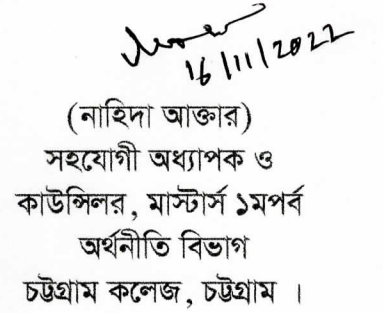 16/11/2022
(নাহিদা আক্তার)
সহযোগী অধ্যাপক ও
কাউন্সিলর, মাস্টার্স ১মপর্ব
অর্থনীতি বিভাগ
চট্টগ্রাম কলেজ, চট্টগ্রাম ।